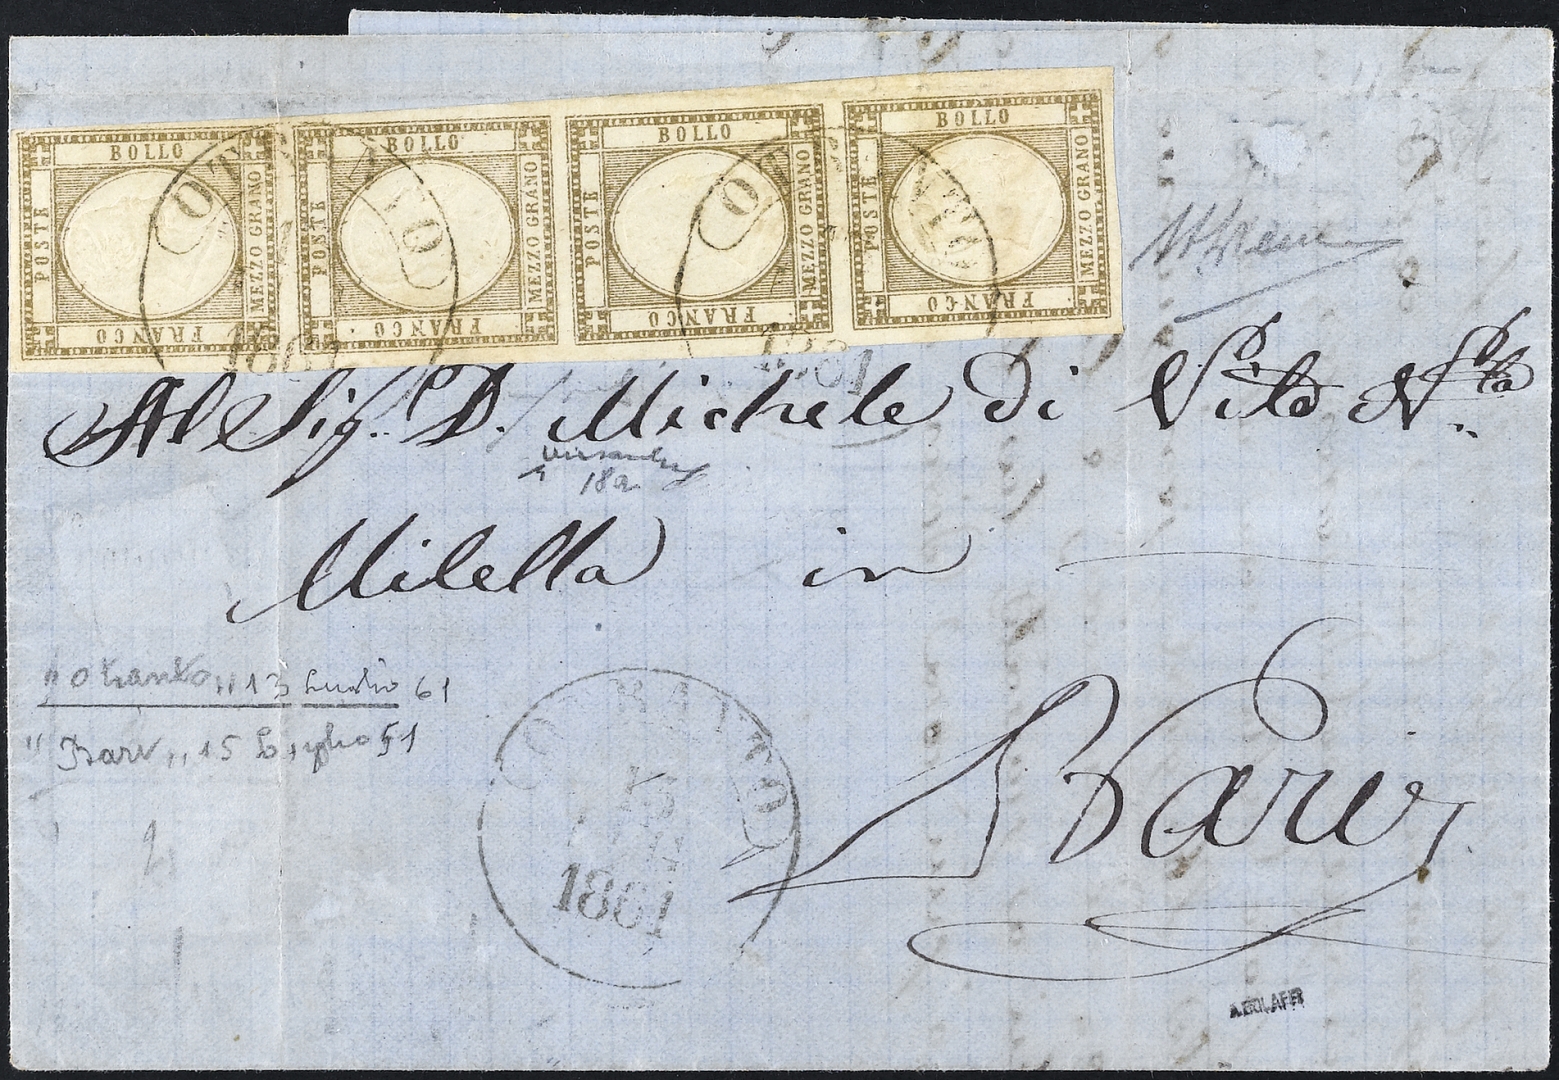 BOLLO POSTE MEZZO GRANO FRANCO
BOLLO POSTE MEZZO GRANO FRANCO
BOLLO POSTE MEZZO GRANO FRANCO
BOLLO POSTE MEZZO GRANO FRANCO
OTRANTO
1861
OTRANTO
1861
Al Sig. D. Michele di Vito N.
18a
Milella in
Bari
"Otranto" 13 Luglio 61
"Bari" 15 Luglio 61
OTRANTO
1861
A. BOLAFFI